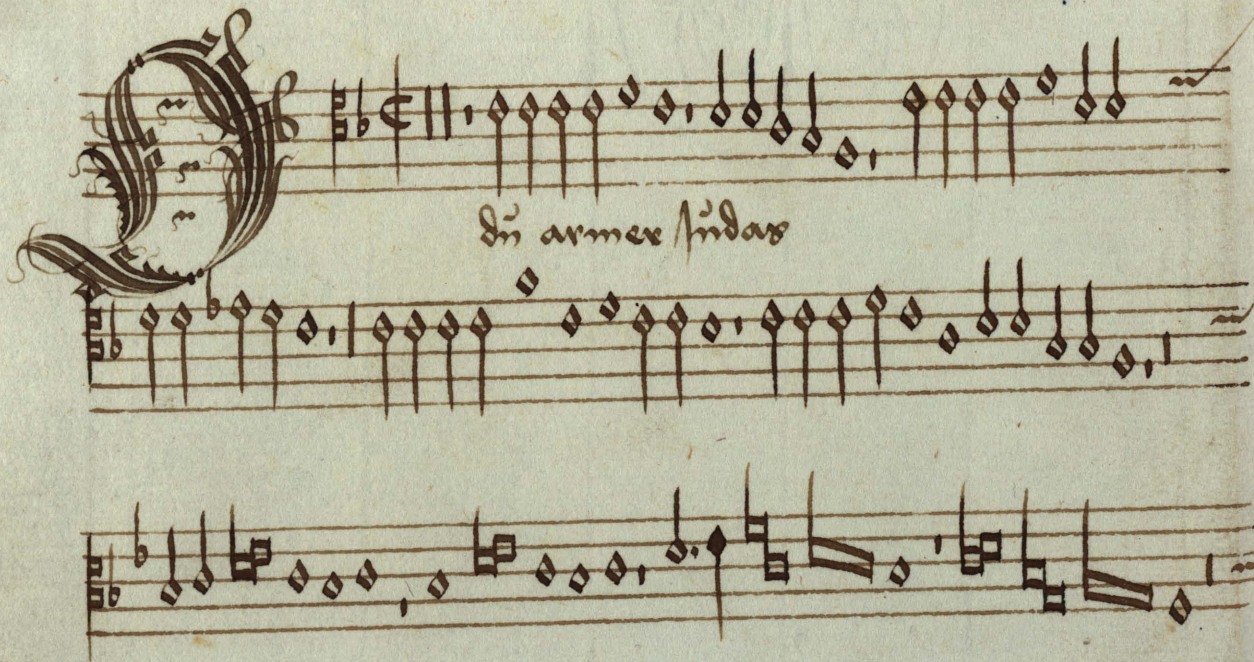 O
dů armer Jůdas